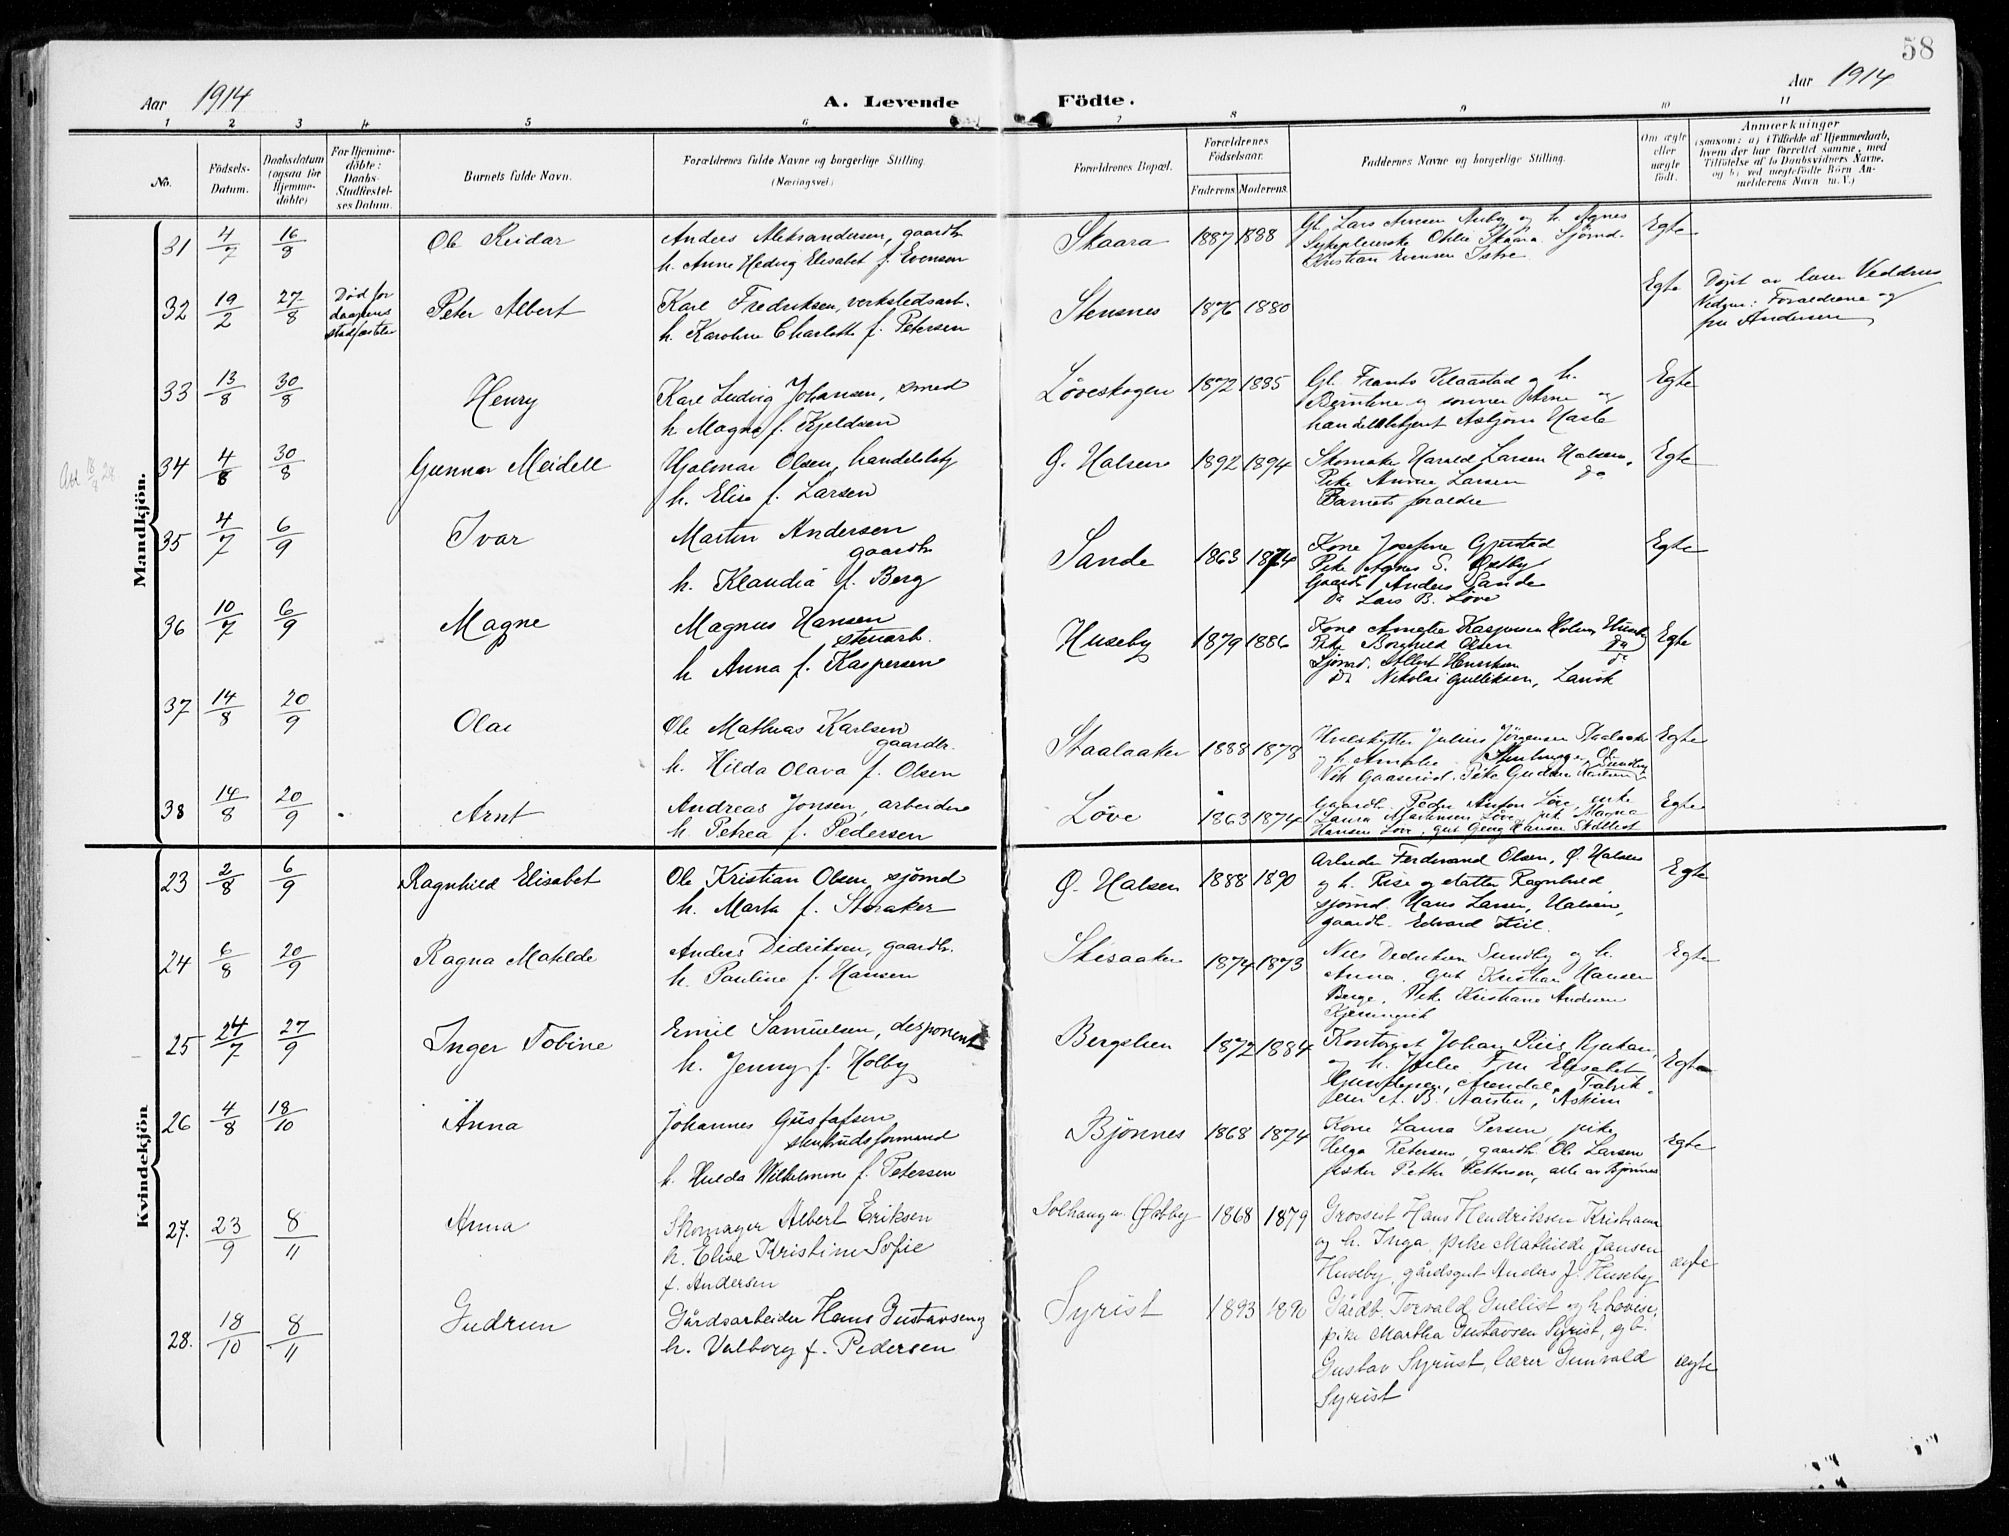 58
Aar 1914
A. Levende Födte.
Aar 1914
1 2 3 4 5 6 7 8 9 10 11
No.
Födsels-Datum.
Daabsdatum (ogsaa for Hjemmedöbte)
For Hjemmedöbte: Daabs-Stadfæstelses Datum.
Barnets fulde Navn.
Forældrenes fulde Navne og borgerlige Stilling. (Næringsvei)
Forældrenes Bopæl.
Forældrenes Födselsaar.
Faderens. Moderens.
Faddernes Navne og borgerlige Stilling.
Om ægte eller uægte födt.
Anmærkninger
(saasom: a) i Tilfælde af Hjemmedaab, hvem der har forrettet samme, med Tilföielse af to Daabsvidners Navne, og b) ved uægtefödte Börn Anmelderens Navn m. V.)
Mandkjön.
31 4/7 16/8 Ole Reidar
Anders Aleksandersen, gaardbr.
h. Anne Hedvig Elisabet f. Evensen
Skaara 1887 1888
Egte
32 19/2 27/8 Død før daapens stadfæstelse
Peter Albert
Karl Fredriksen, verkstedsarb.
h. Karoline Charlotte f. Petersen
Stensnes 1876 1880
Egte
Døpt av lærer
Vidner: Forældrene og
fru Andersen
33 13/8 30/8 Henry
Karl Ludvig Johansen, smed
h. Magna f. Kjeldsen
Løveskogen 1872 1885
Gl. Frants Klaastad og h.
Berntine og sønner Arne og
handelsbetjent Asbjørn Hasle
Egte
34 4/8 30/8 Gunnar Meidell
Hjalmar Olsen, handelsbetj
h. Elise f. Larsen
Ø. Halsen 1892 1894
Skomaker Harald Larsen Halsen
Pike Anna Larsen do
Barnets forældre
Egte
35 4/7 6/9 Ivar
Martin Andersen
gaardbr
h. Klaudia f. Berg
Sande 1863 1874
Kone Josefine Gjerstad
Pike Agnes S. Østby
Gaardb. Anders Sande
Do Lars B. Løve
Egte
36 10/7 6/9 Magne
Magnus Hansen
stenarb.
h Anna f. Kaspersen
Huseby 1879 1886
Kone Anette Kaspersen Holm, Huseby
Pike Borghild Olsen do
Sjømd. Albert Henriksen do
Do Nikolai Gulliksen, Larvik
Egte
37 14/8 20/9 Olai
Ole Mathias Karlsen
gaardbr.
h. Hilda Olava f. Olsen
Staalaaker 1888 1878
Hvalskytter Julius Jørgensen Staalaaker
og h. Amalie
Egte
38 14/8 20/9 Arnt
Andreas Jonsen, arbeider
h. Petrea f. Pedersen
Løve 1863 1874
Gaardb. Peder Anton Løve, enke
Laura Martinsen Løve, pik. Magna
Hansen Løve, gut Georg Hansen
Egte
Kvindekjön
23 2/8 6/9 Ragnhild Elisabet
Ole Kristian Olsen, sjømd
h. Marta f. Storaker
Ø. Halsen 1888 1890
Arbeider Ferdinand Olsen, Ø. Halsen
og h. Rise og datter Ragnhild,
sjømd. Hans Larsen, Halsen,
gaardb. Edvard
Egte
24 6/8 20/9 Ragna Matilde
Anders Didriksen, gaardbr.
h. Pauline f. Hansen
Skisaaker 1874 1873
Nils Dedriksen Sundby og h.
Anna. Gut Kristian Hansen
Berge, Pike Kristiane Andersen
Egte
25 24/7 27/9 Inger Tobine
Emil Samuelsen, disponent
h. Jenny f. Holby
Bergslien 1872 1884
Egte
26 4/8 18/10 Anna
Johannes Gustafsen
stenhuds formand
h. Hulda Wilhelmine f. Petersen
Bjønnes 1868 1874
Kone Laura Persen, pike
Helga Petersen, gaardb. Ole Larsen
fisker Petter Pettersen, alle av Bjønnes
Egte
27. 23/9 8/11 Anna
Skomager Albert Eriksen
h. Elise Kristine Sofie
f. Andersen
Solhaug u. Østby 1868 1879
Grosserer Hans Hendriksen Kristiania
og h. Inga, pike Mathilde Jansen
Huseby, gårdsgut Anders J. Huseby
ægte
28. 18/10 8/11 Gudrun
Gårdsarbeider Hans Gustavsen og
h. Valborg f. Pedersen
Syrist 1893 1890
Gårdb. Torvald Gullist og h. Lovise,
pike Martha Gustavsen Syrist, gb.
Gustav Syrist, lærer Gunvald
Syrist
ægte